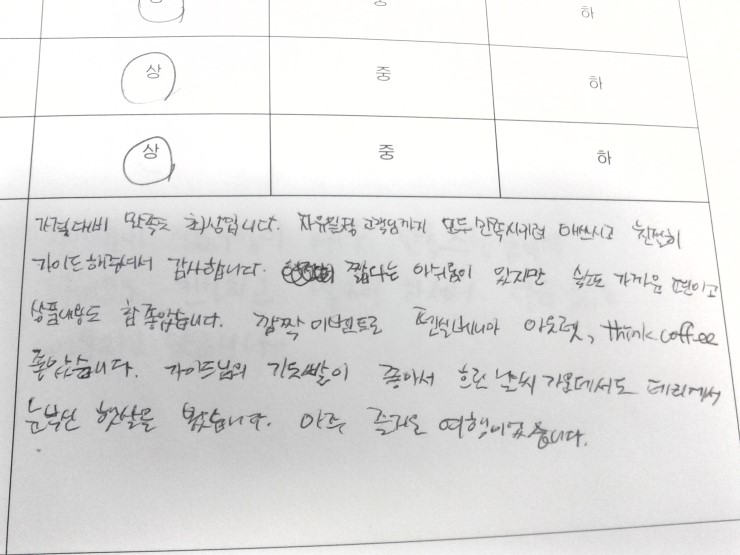 상 중 하
상 중 하
상 중 하
가격대비 만족도 최상입니다. 자유일정 고객님까지 모두 만족시키려 애쓰시고 친절히
가이드해주셔서 감사합니다. 짧다는 아쉬움이 있지만 숙소 가까운 편이고
상품내용도 참 좋았습니다. 깜짝 이벤트로 펜실베니아 아웃렛, think coffee
좋았습니다. 가이드님의 기도빨이 좋아서 흐린 날씨 가운데서도 페리에서
눈부신 햇살을 봤습니다. 아주 즐거운 여행이었습니다.